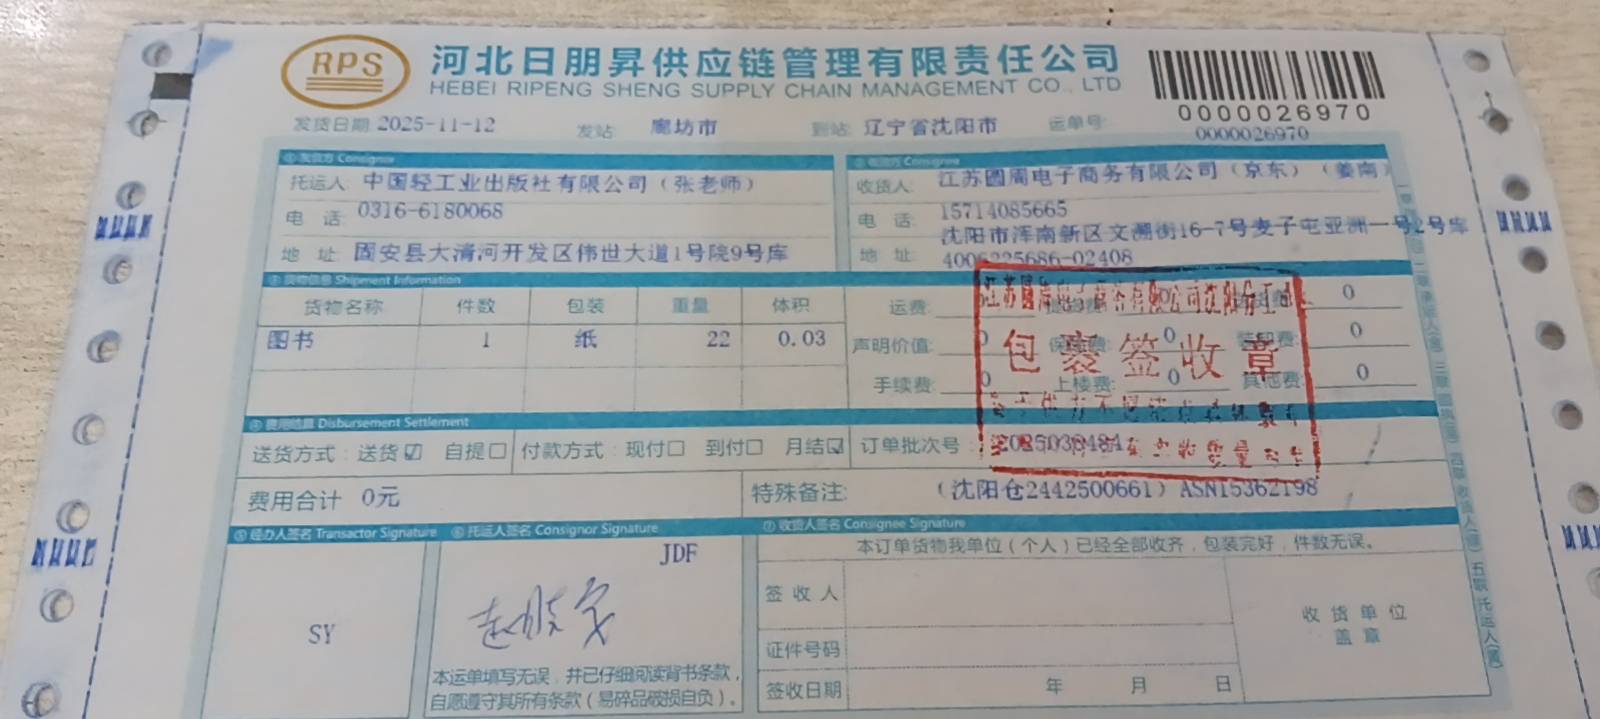 RPS
河北日朋昇供应链管理有限责任公司
HEBEI RIPENG SHENG SUPPLY CHAIN MANAGEMENT CO., LTD
0000026970
发货日期 2025-11-12 发站: 廊坊市 到站: 辽宁省沈阳市 运单号: 0000026970
①发货方 Consignor ②收货方 Consignee
托运人: 中国轻工业出版社有限公司（张老师） 收货人: 江苏圆周电子商务有限公司（京东）（姜南）
电 话: 0316-6180068 电 话: 15714085665
地 址: 固安县大清河开发区伟世大道1号院9号库 地 址: 沈阳市浑南新区文溯街16-7号麦子屯亚洲一号2号库
4006225686-02408
③货物信息 Shipment Information
货物名称 件数 包装 重量 体积 运费: 0
图书 1 纸 22 0.03 声明价值: 0 保险费: 0 装卸费: 0
手续费: 0 上楼费: 0 其他费: 0
包裹签收章
④费用结算 Disbursement Settlement
送货方式: 送货☑ 自提☐ 付款方式: 现付☐ 到付☐ 月结☑ 订单批次号
费用合计 0元 特殊备注: （沈阳仓2442500661）ASN15362198
⑤经办人签名 Transactor Signature ⑥托运人签名 Consignor Signature ⑦收货人签名 Consignee Signature
本订单货物我单位（个人）已经全部收齐，包装完好，件数无误。
JDF
SY
签收人
收货单位
盖章
证件号码
签收日期 年 月 日
本运单填写无误，并已仔细阅读背书条款，
自愿遵守其所有条款（易碎品破损自负）。